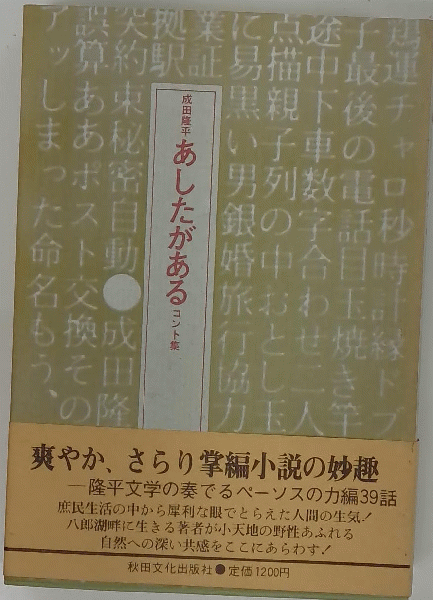 鶏運チャロ秒時計縁ドブ
子最後の電話目玉焼き竿
途中下車数字合わせ二人
点描親子列の中おとし玉
に易黒い男銀婚旅行協力
業証
拠駅
契約束秘密自動●成田隆
誤算ああポスト交換その
アッしまった命名もう、
成田隆平 あしたがある コント集
爽やか、さらり掌編小説の妙趣
―隆平文学の奏でるペーソスの力編39話
庶民生活の中から犀利な眼でとらえた人間の生気！
八郎湖畔に生きる著者が小天地の野性あふれる
自然への深い共感をここにあらわす！
秋田文化出版社●定価1200円